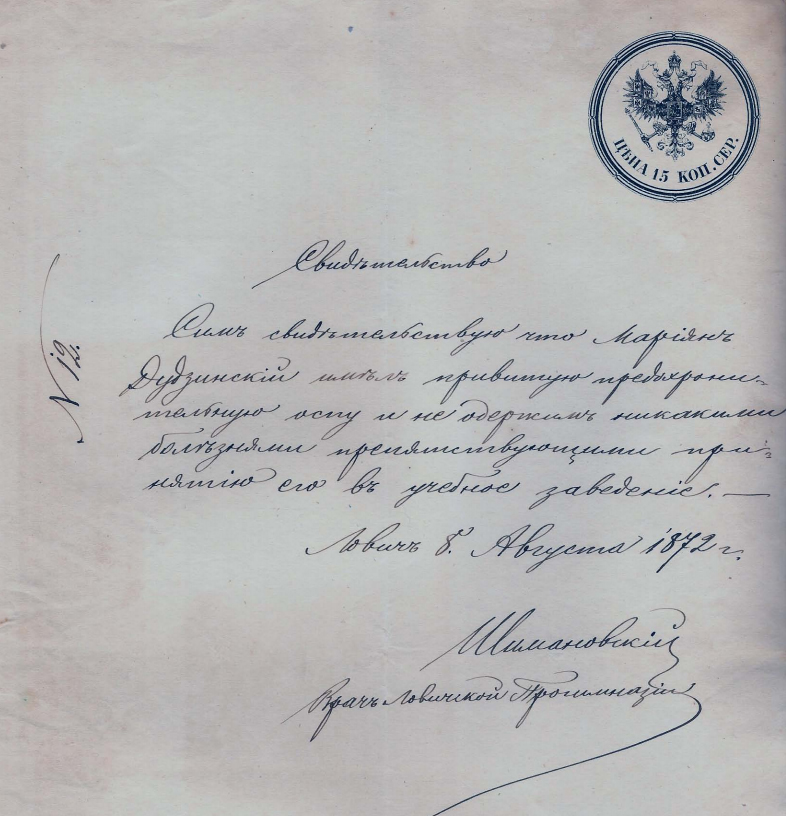 ЦѢНА 15 КОП. СЕР.
Свидѣтельство
N 12.
Симъ свидѣтельствую что Маріянъ
Дудзинскій имѣлъ привитую предохрани-
тельную оспу и не одержимъ никакими
болѣзнями препятствующими при-
нятію его въ учебное заведеніе. —
Ловичъ 8. Августа 1872 г.
Шимановскій
Врачъ Ловичской Прогимназіи